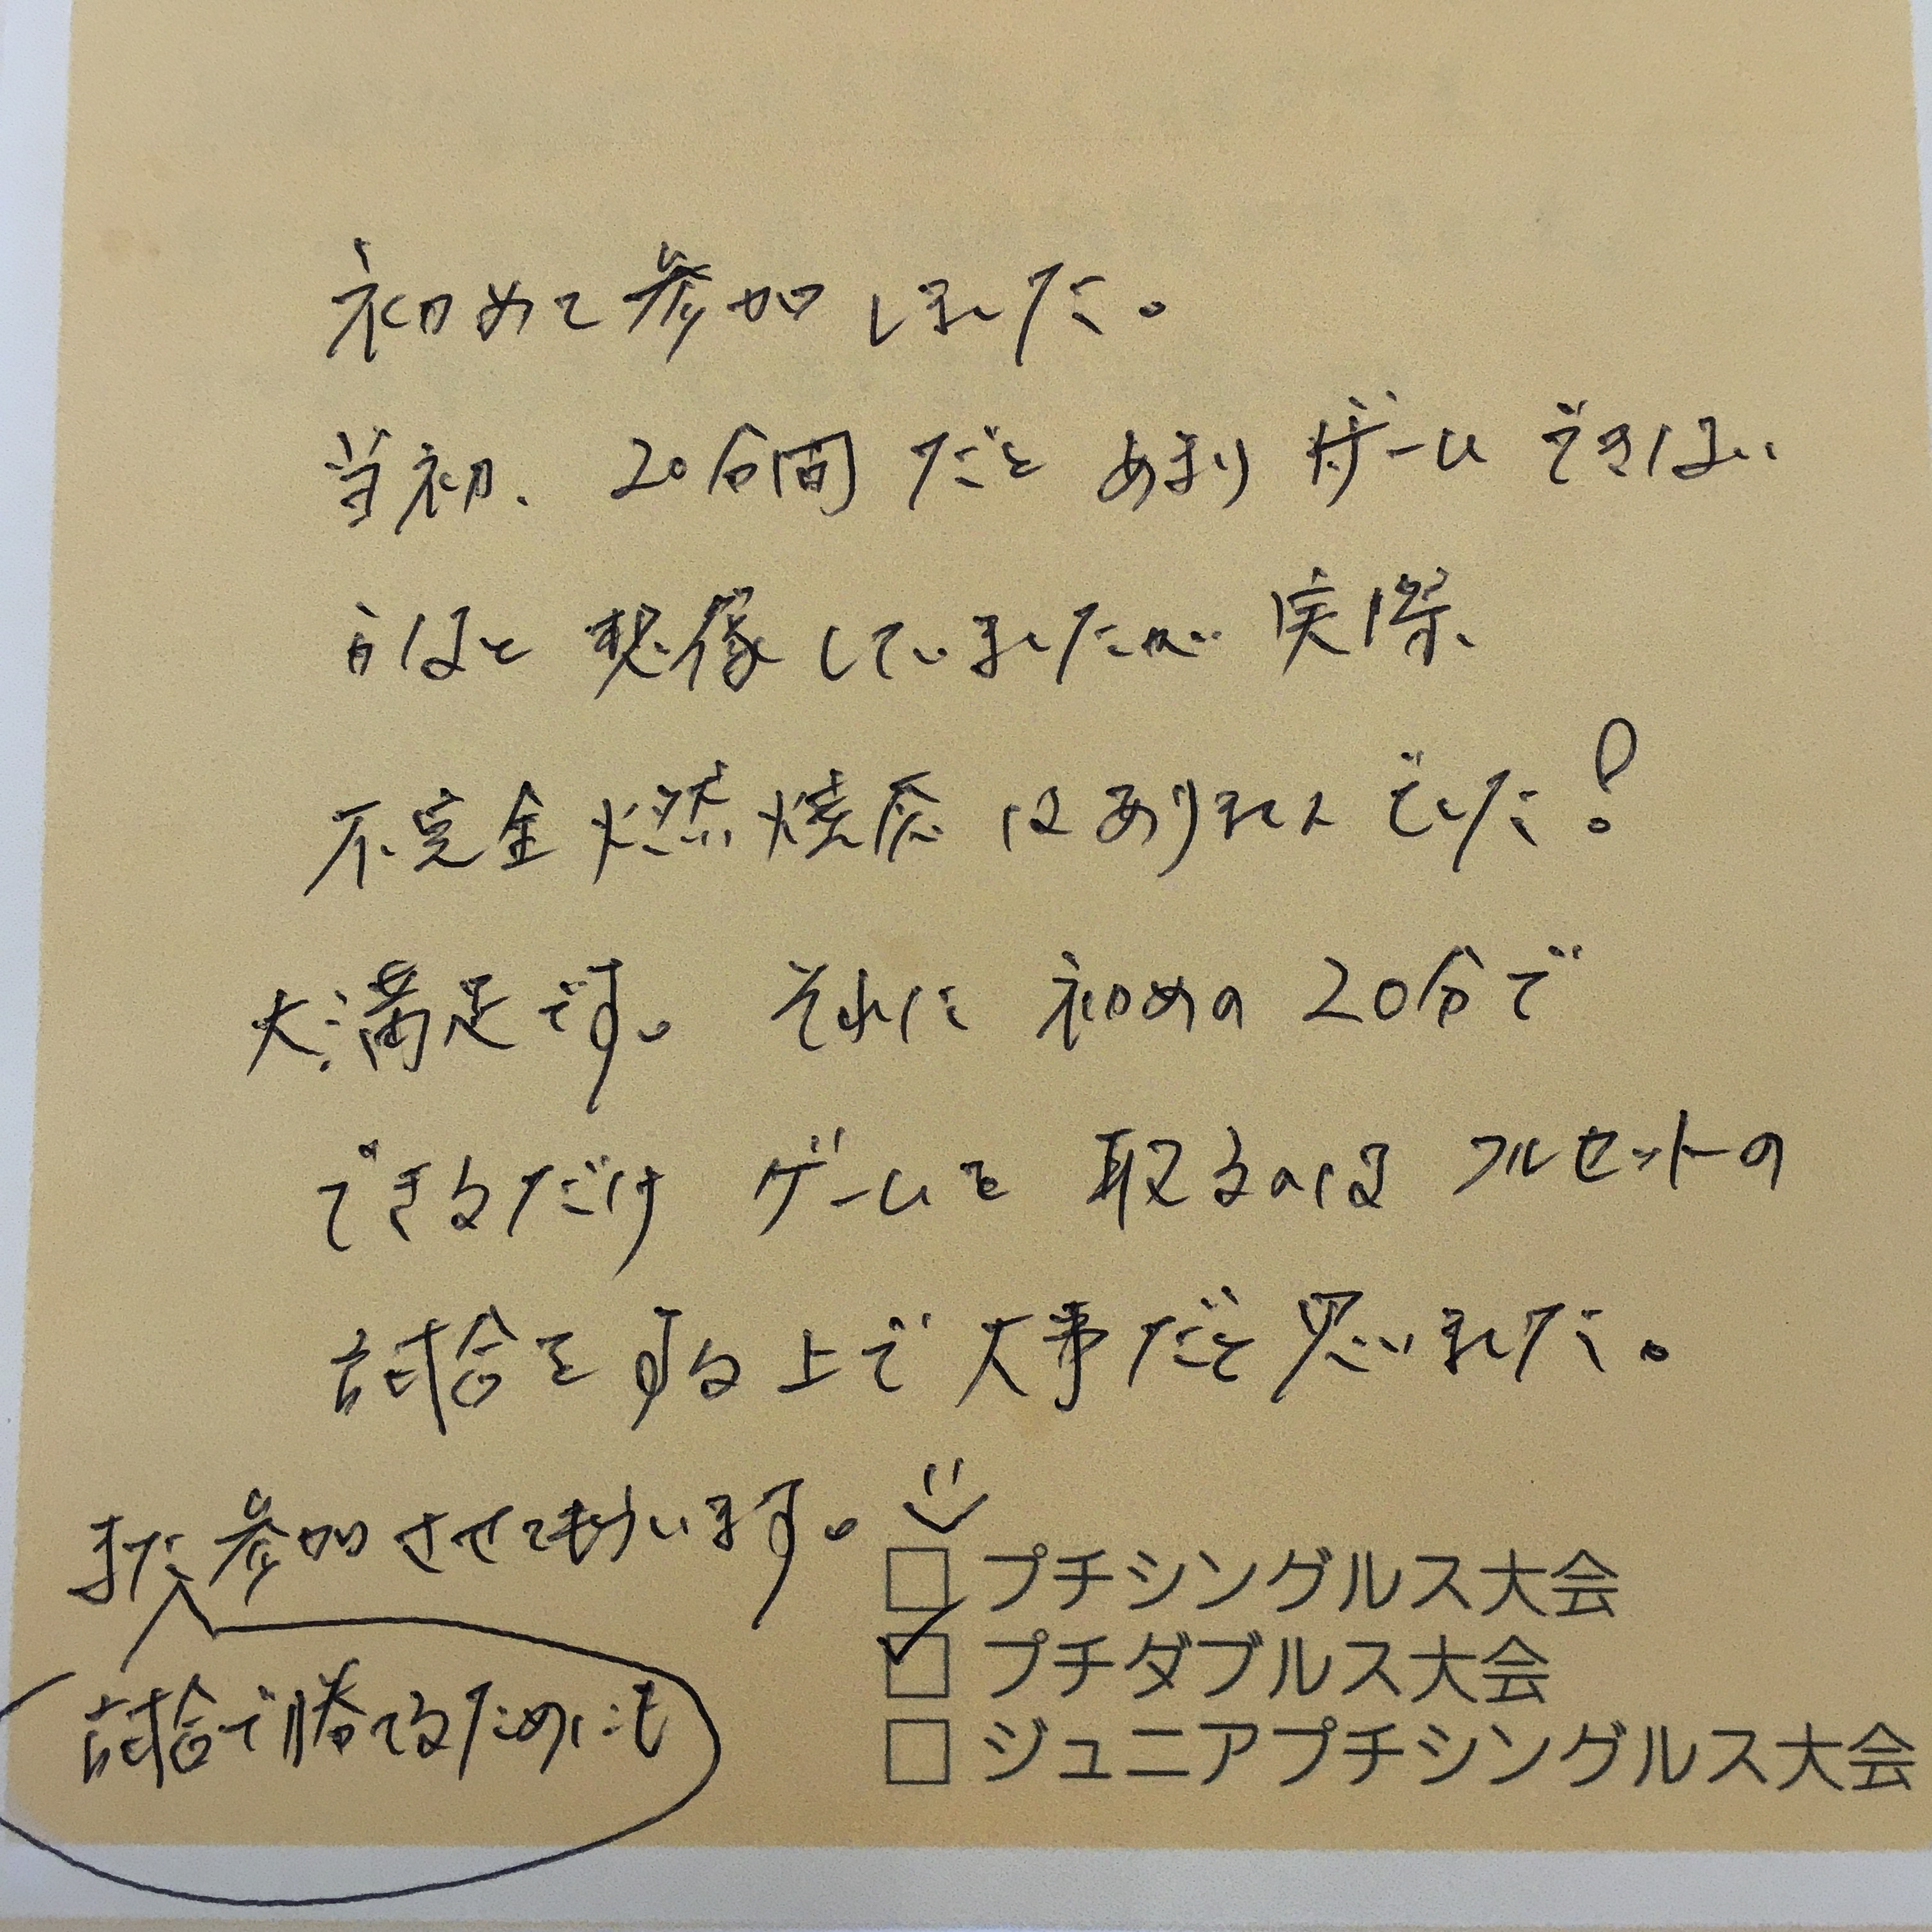 初めて参加しました。
当初、20分間だとあまりゲームできない
かなと想像していましたが実際、
不完全燃焼感はありませんでした!
大満足です。それに初めの20分で
できるだけゲームを取るのはフルセットの
試合をする上で大事だと思いました。
また参加させてもらいます。
試合で勝てるためにも
□プチシングルス大会
☑プチダブルス大会
□ジュニアプチシングルス大会